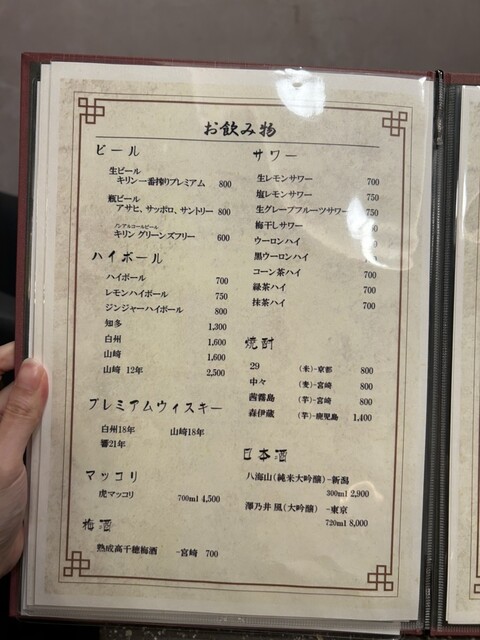 お飲み物
ビール
生ビール
キリン一番搾りプレミアム 800
瓶ビール
アサヒ、サッポロ、サントリー 800
ノンアルコールビール
キリン グリーンズフリー 600
ハイボール
ハイボール 700
レモンハイボール 750
ジンジャーハイボール 800
知多 1,300
白州 1,600
山崎 1,600
山崎 12年 2,500
プレミアムウィスキー
白州18年 山崎18年
響21年
マッコリ
虎マッコリ 700ml 4,500
梅酒
熟成高千穂梅酒 -宮崎 700
サワー
生レモンサワー 700
塩レモンサワー 750
生グレープフルーツサワー 750
梅干しサワー
ウーロンハイ
黒ウーロンハイ
コーン茶ハイ 700
緑茶ハイ 700
抹茶ハイ 700
焼酎
29 (米)-京都 800
中々 (麦)-宮崎 800
茜霧島 (芋)-宮崎 800
森伊蔵 (芋)-鹿児島 1,400
日本酒
八海山(純米大吟醸)-新潟
300ml 2,900
澤乃井 凰(大吟醸) -東京
720ml 8,000